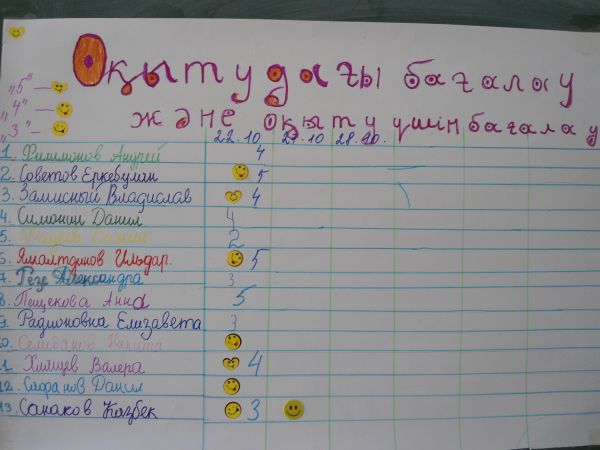 Оқытудағы бағалау
және оқыту үшін бағалау
"5" —
"4" —
"3" —
22.10 27.10 28.10.
1. Филимонов Андрей 4
2. Советов Еркебулан 5
3. Залисный Владислав 4
4. Симонин Данил 4
5. 2
6. Ямалтдинов Ильдар. 5
7. Резе Александра 3
8. Пещекова Анна 5
9. Радионовна Елизавета 3
10. Селиванов Никита
11. Хлищев Валера 4
12. Сафранов Данил
13. Санаков Казбек 3